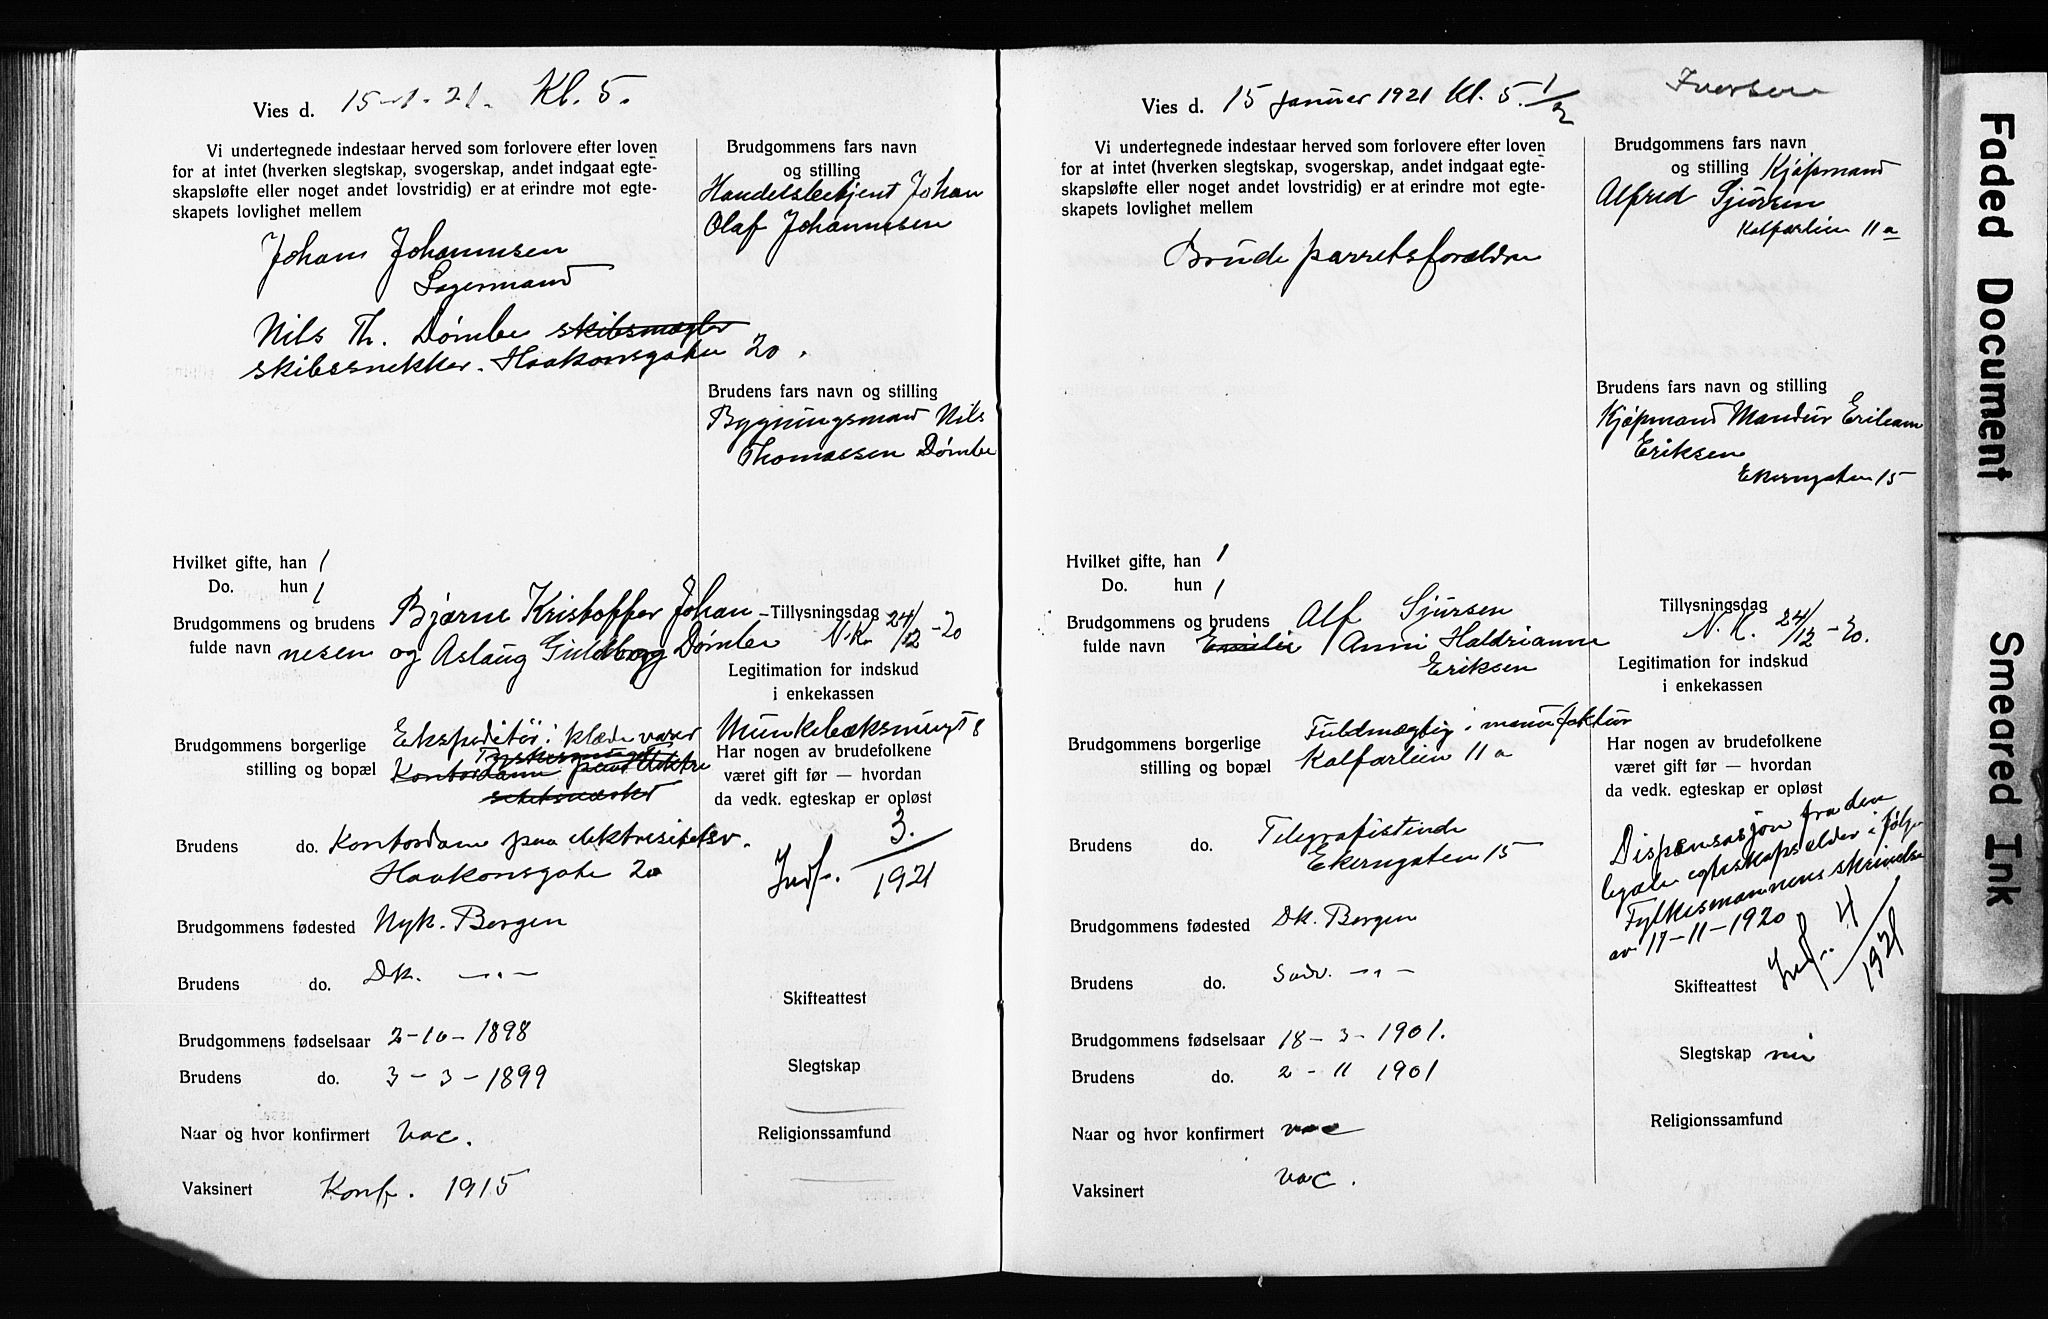 Vies d. 15-1-21. Kl. 5.
Vi undertegnede indestaar herved som forlovere efter loven
for at intet (hverken slegtskap, svogerskap, andet indgaat egte-
skapsløfte eller noget andet lovstridig) er at erindre mot egte-
skapets lovlighet mellem
Johan Johannesen
Lagermand
Nils Th. Dømbe skibsmægler
skibssnekker. Haakonsgaten 20.
Brudgommens fars navn
og stilling
Handelsbetjent Johan
Olaf Johannesen
Brudens fars navn og stilling
Bygningsmand Nils
Thomassen Dømbe
Hvilket gifte, han 1
Do. hun 1
Brudgommens og brudens Bjarne Kristoffer Johan-
fulde navn nesen og Aslaug Guldborg Dømbe
Tillysningsdag
N.K. 24/12-20
Legitimation for indskud
i enkekassen
Brudgommens borgerlige Ekspeditør i klædevarer
Munkebæksmuget 8
stilling og bopæl Kontordame paa elektre
Har nogen av brudefolkene
været gift før — hvordan
da vedk. egteskap er opløst
Brudens do. Kontordame paa elektrisitetsv.
Haakonsgate 20
Indf. 3./1921
Brudgommens fødested Nyk. Bergen
Brudens do. Dk. -"-
Skifteattest
Brudgommens fødselsaar 2-10-1898
Brudens do. 3-3-1899
Slegtskap
Naar og hvor konfirmert Vac.
Religionssamfund
Vaksinert Konf. 1915
Iversen
Vies d. 15 januar 1921 Kl. 5. 1/2
Vi undertegnede indestaar herved som forlovere efter loven
for at intet (hverken slegtskap, svogerskap, andet indgaat egte-
skapsløfte eller noget andet lovstridig) er at erindre mot egte-
skapets lovlighet mellem
Brudeparretsforældre
Brudgommens fars navn
og stilling Kjøpmand
Alfred Sjursen
Kalfarlien 11a
Brudens fars navn og stilling
Kjøpmand Mandus
Eriksen
Ekerngaten 15
Hvilket gifte, han 1
Do. hun 1
Brudgommens og brudens Alf Sjursen
fulde navn Emilie Anni Haldrianne
Eriksen
Tillysningsdag
N.K. 24/12-20.
Legitimation for indskud
i enkekassen
Brudgommens borgerlige Fuldmægtig i manufaktur
stilling og bopæl Kalfarlien 11a
Har nogen av brudefolkene
været gift før — hvordan
da vedk. egteskap er opløst
Brudens do. Telegrafistinde
Ekerngaten 15
Dispensasjon fra den
legale egteskapsalder i følge
Fylkesmannens skrivelse
av 17-11-1920
Indf. 4/1921
Brudgommens fødested Dk. Bergen
Brudens do. Sndv. -"-
Skifteattest
Brudgommens fødselsaar 18-3-1901.
Brudens do. 2-11 1901
Slegtskap nei
Naar og hvor konfirmert vac
Religionssamfund
Vaksinert vac.
Faded Document
Smeared Ink